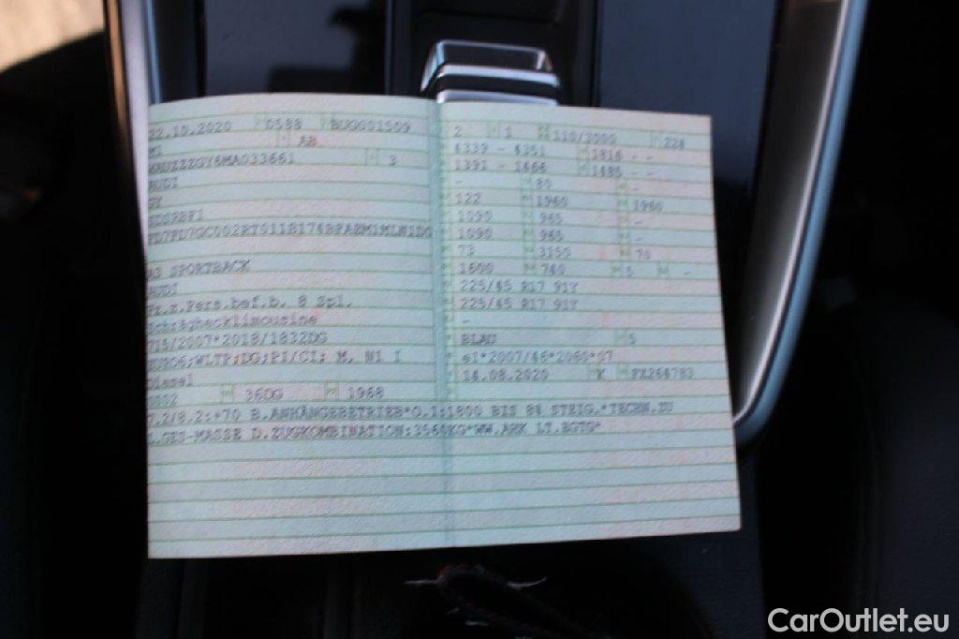 22.10.2020 0588 BUG001509
M1 AB
WAUZZZGY6MA033661 3
AUDI
GY
A3 SPORTBACK
AUDI
Fz.z.Pers.bef.b. 8 Spl.
Schräghecklimousine
715/2007*2018/1832DG
EURO6;WLTP;DG;PI/CI; M, N1 I
Diesel
0002 36DG 1968
7.2/8.2:+70 B.ANHÄNGEBETRIEB*O.1:1800 BIS 8% STEIG.*TECHN.ZU
L.GES-MASSE D.ZUGKOMBINATION:3560KG*WW.AHK LT.EGTG*
2 1 110/3000 224
4339 - 4351 1816 - -
1391 - 1466 1485 - -
- 80 -
122 1960 1960
1090 965 -
1090 965 -
73 3150 70
1600 740 5 -
225/45 R17 91Y
225/45 R17 91Y
-
BLAU 5
e1*2007/46*2060*07
14.08.2020 K FX264783
CarOutlet.eu